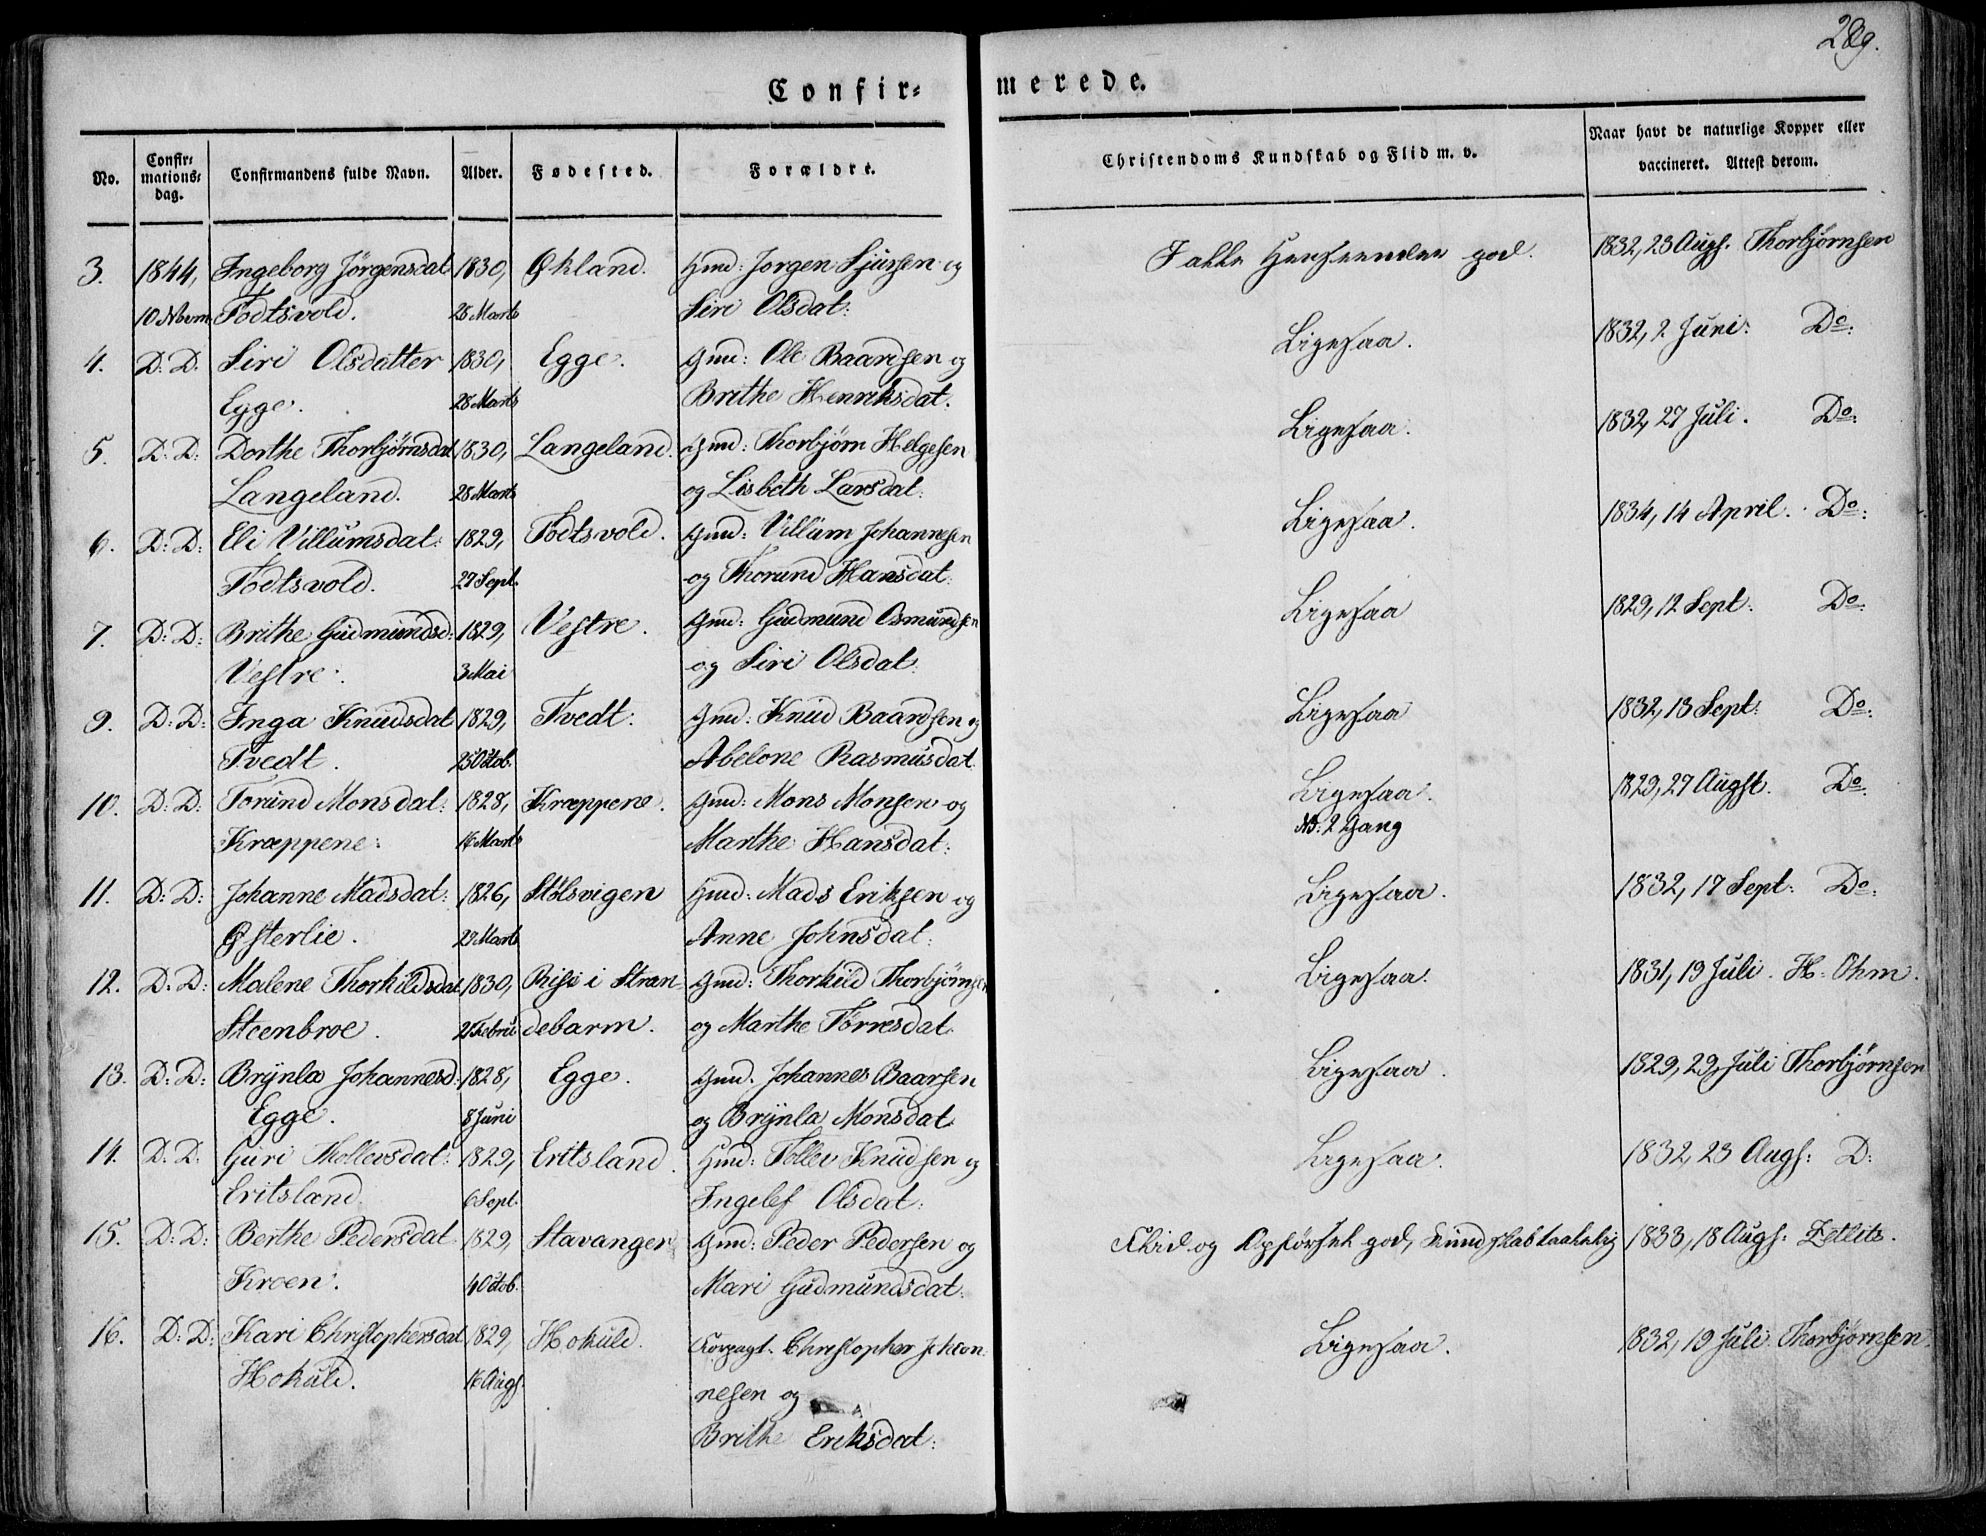 289.
Confir-
merede.
No.
Confir-
mations-
dag.
Confirmandens fulde Navn.
Alder.
Fødested.
Forældre.
Christendoms Kundskab og Flid m. v.
Naar havt de naturlige Kopper eller
vaccineret. Attest derom.
3. 1844, Ingeborg Jørgensdat 1830, Økland. Gmd: Jørgen Sjursen og
10 Novm Todtsvold. 28 Marts Siri Olsdat:
I alle Henseender god. 1832, 23 Augs. Thorbjørnsen
4. D: D. Siri Olsdatter 1830, Egge. Gmd: Ole Baardsen og
Egge. 28 Marts Brithe Henriksdat.
Ligesaa. 1832, 2 Juni: Do:
5. D: D: Dorthe Thorbjørnsdat 1830, Langeland. Gmd: Thorbjørn Helgesen
Langeland. 28 Marts og Lisbeth Larsdat:
Ligesaa. 1832, 27 Juli. Do:
6. D: D: Eli Villumsdat: 1829, Todtsvold. Gmd: Villum Johannesen
Todtsvold. 27 Sept. og Thorund Hansdat:
Ligesaa. 1834, 14 April. Do:
7. D: D: Brithe Gudmundsd: 1829, Vestre. Gmd: Gudmund Osmundsen
Vestre. 3 Mai og Siri Olsdat:
Ligesaa 1829, 12 Sept. Do:
9. D: D: Inga Knudsdat 1829, Tvedt. Gmd: Knud Baardsen og
Tvedt. 25 Octob. Abelone Rasmusdat
Ligesaa 1832, 13 Sept: Do:
10. D: D: Torund Monsdat: 1828, Kræppene. Gmd: Mons Monsen og
Kræppene: 16 Marts Marthe Hansdat:
Ligesaa. 1829, 27 Augst. Do:
NB: 2 Gang
11. D: D: Johanne Madsdat: 1826, Stølsvigen Gmd: Mads Eriksen og
Østerlie. 29 Marts Anne Johnsdat:
Ligesaa. 1832, 17 Sept: Do:
12. D: D: Malene Thorkildsdat 1830, Risø i Stran- Gmd: Thorkild Thorbjørnsen
Steenbroe. Febru debarm. og Marthe Tørresdat.
Ligesaa. 1831, 19 Juli. H. Ohm.
13. D: D: Brynla Johannesd: 1828, Egge. Gmd. Johannes Baarsen
Egge. 8 Juni og Brynla Monsdat
Ligesaa. 1829, 29 Juli Thorbjørnsen
14. D: D: Guri Thollevsdat: 1829, Eritsland. Gmd: Tollev Knudsen og
Eritsland. 6 Sept. Ingelef Olsdat:
Ligesaa. 1832, 23 Augs: D:
15. D: D: Berthe Pedersdat 1829, Stavanger Gmd: Peder Pedersen og
Kroen. 4 Octob. Mari Gudmundsdat:
Flid og Opførsel god, Kundskab taalelig 1833, 18 Augs: Zetlits.
16. D: D: Kari Christophersdat 1829, Hokuld. Forpagt. Christopher Johan-
Hokuld. 16 Augs. nesen og
Brithe Eriksdat:
Ligesaa. 1832, 19 Juli. Thorbjørnsen.